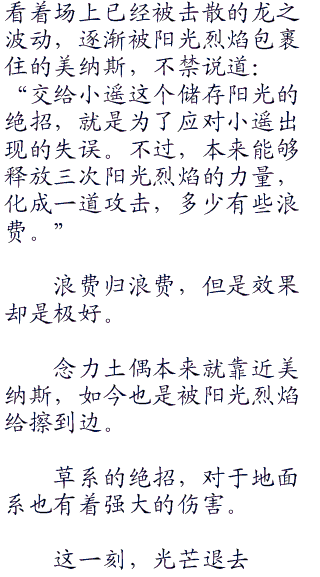 看着场上已经被击散的龙之
波动，逐渐被阳光烈焰包裹
住的美纳斯，不禁说道：
“交给小遥这个储存阳光的
绝招，就是为了应对小遥出
现的失误。不过，本来能够
释放三次阳光烈焰的力量，
化成一道攻击，多少有些浪
费。”
浪费归浪费，但是效果
却是极好。
念力土偶本来就靠近美
纳斯，如今也是被阳光烈焰
给擦到边。
草系的绝招，对于地面
系也有着强大的伤害。
这一刻，光芒退去